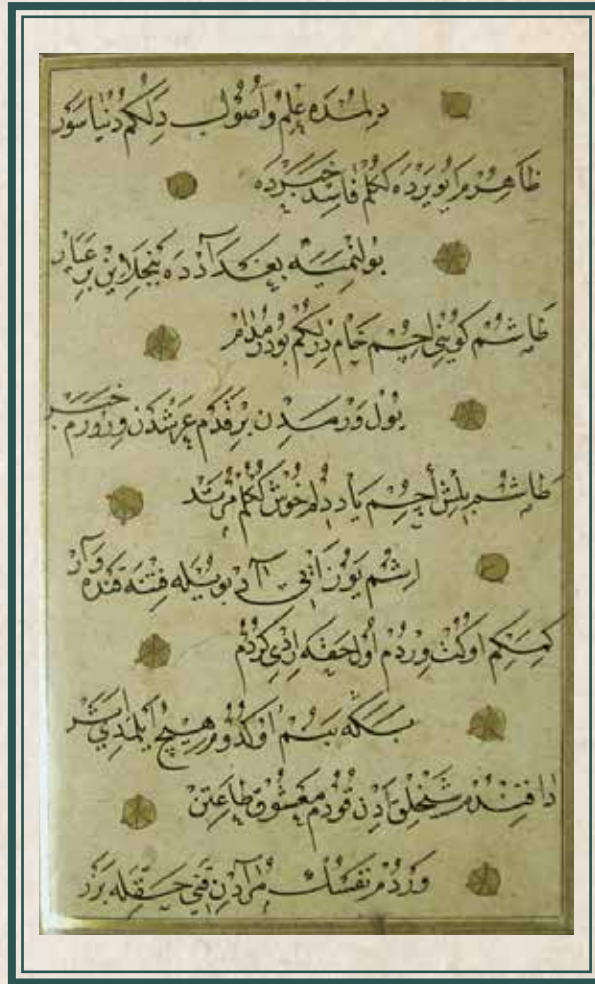 دِلُمْدَه عِلِمْ وُاُصُولْ دِلَكُمْ دُنْيَا سَوَرْ
ظَاهِرُمْ اَيُو يِرْدَه كُكْلُمْ فَاسِدْ خَبَرْدَه
بُولُنْمَيَه بَغْدَادْدَه بَنْجِلَايِنْ بِرْ عَيَارْ
طَاشُمْ كُويُنْدِى اِچُمْ خَامْ دِرْلِكُمْ بُودُرْ مُدَامْ
يُولْ وَرْمَدِنْ بِرْ قَدَمْ عَرْشْدَنْ وِرُورَمْ خَبَرْ
طَاشُمْ بِلِشْ اِچُمْ يَادْ دِلُمْ خُوشْ كُكْلُمْ مُرْتَدْ
اِشُمْ يَوُزْ اَيُو آدْ بُويْلَه فِتْنَه قَنْدَه وَارْ
كِمْسَيَه اُوكُتْ وِرْدُمْ اُولْ حَقَّه اِرْدِى كُرْدُمْ
بَكَه بَنُمْ اُوكُدُومْ هِيچْ اَيْلَمَدِى اَثَرْ
دَاقِنْدُمْ شَيْخْلِقْ آدِنْ قُودُمْ مَعْشُوقْ طَاعَتِنْ
وِرْدُمْ نَفْسُكْ مُرَادِنْ قَنِى حَقِلَه بَزَرْ